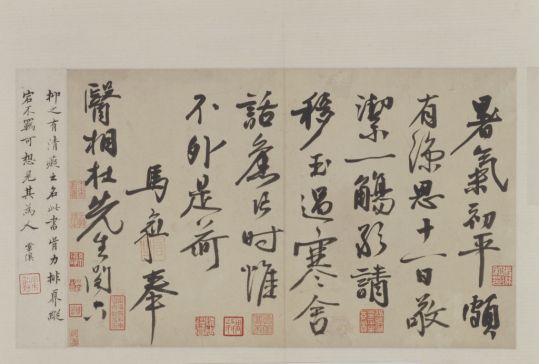 暑氣初平頗
有涼思十一日敬
潔一觴請
移玉過寒舍
話舊片时惟
不外是荷
馬愈奉
醫相杜先生閣下
抑之有清癡之名此書骨力排奡縱
宕不羈可想見其為人 雲溪